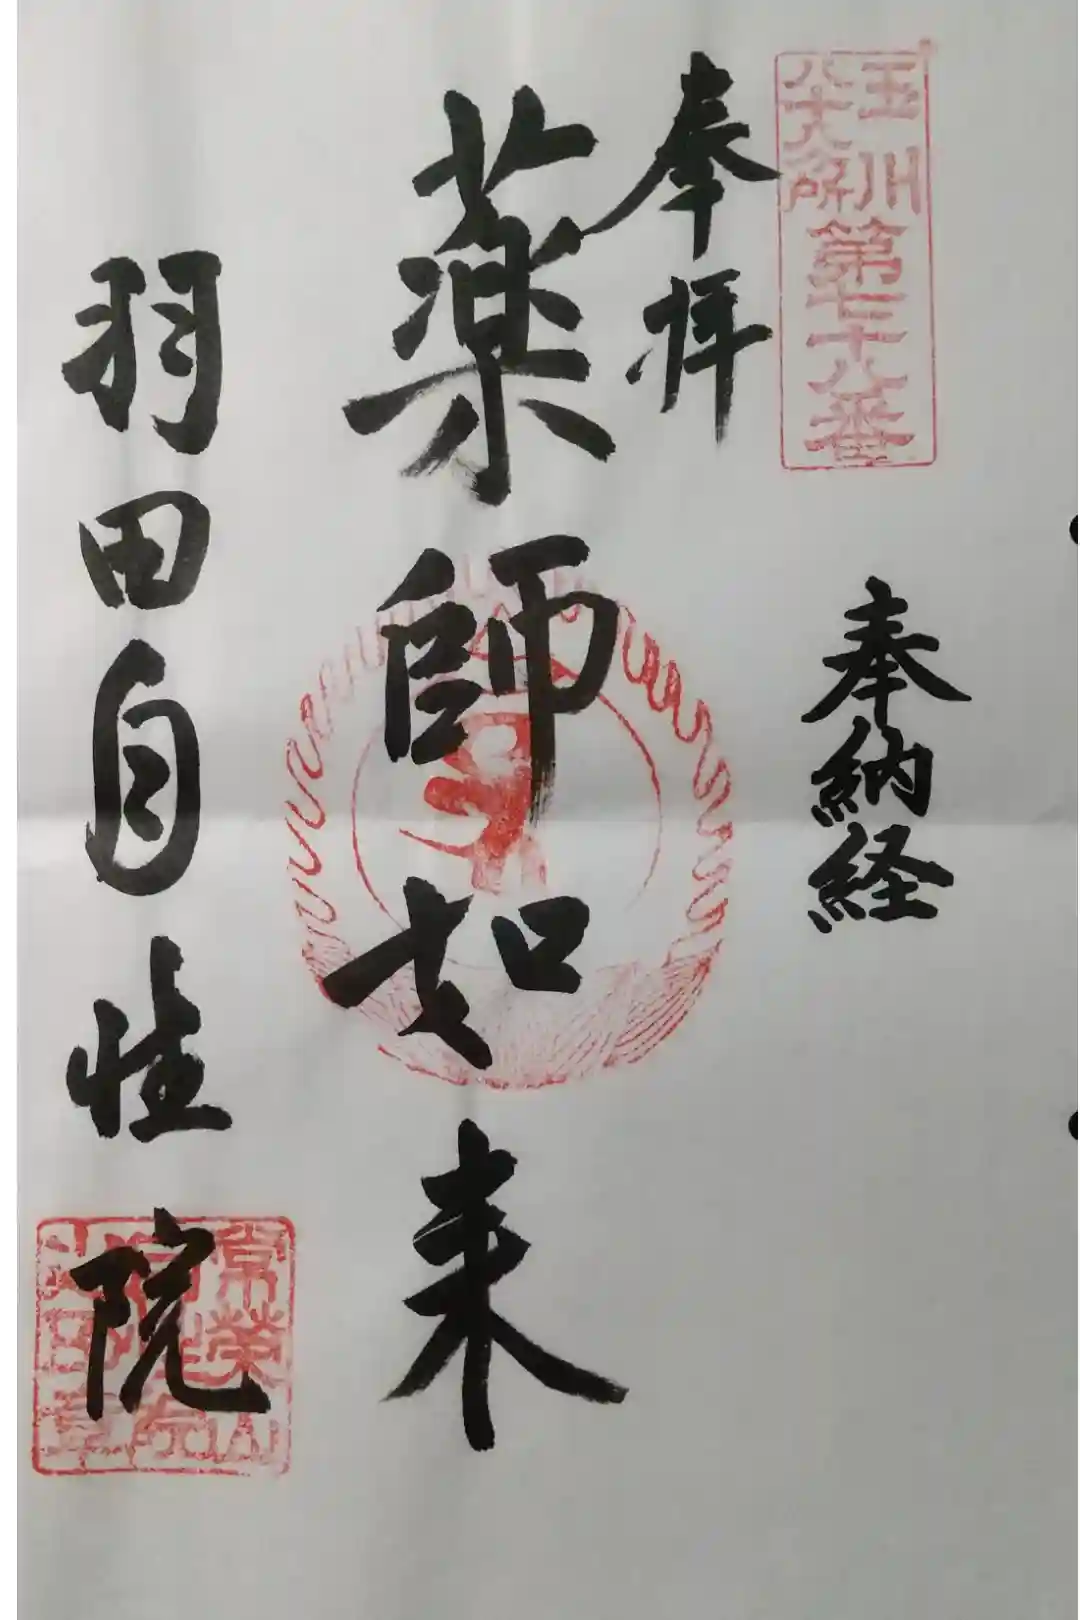 玉川
八十八所
第七十八番
奉納経
奉拝
薬師如来
羽田自性院
常榮山
自性院